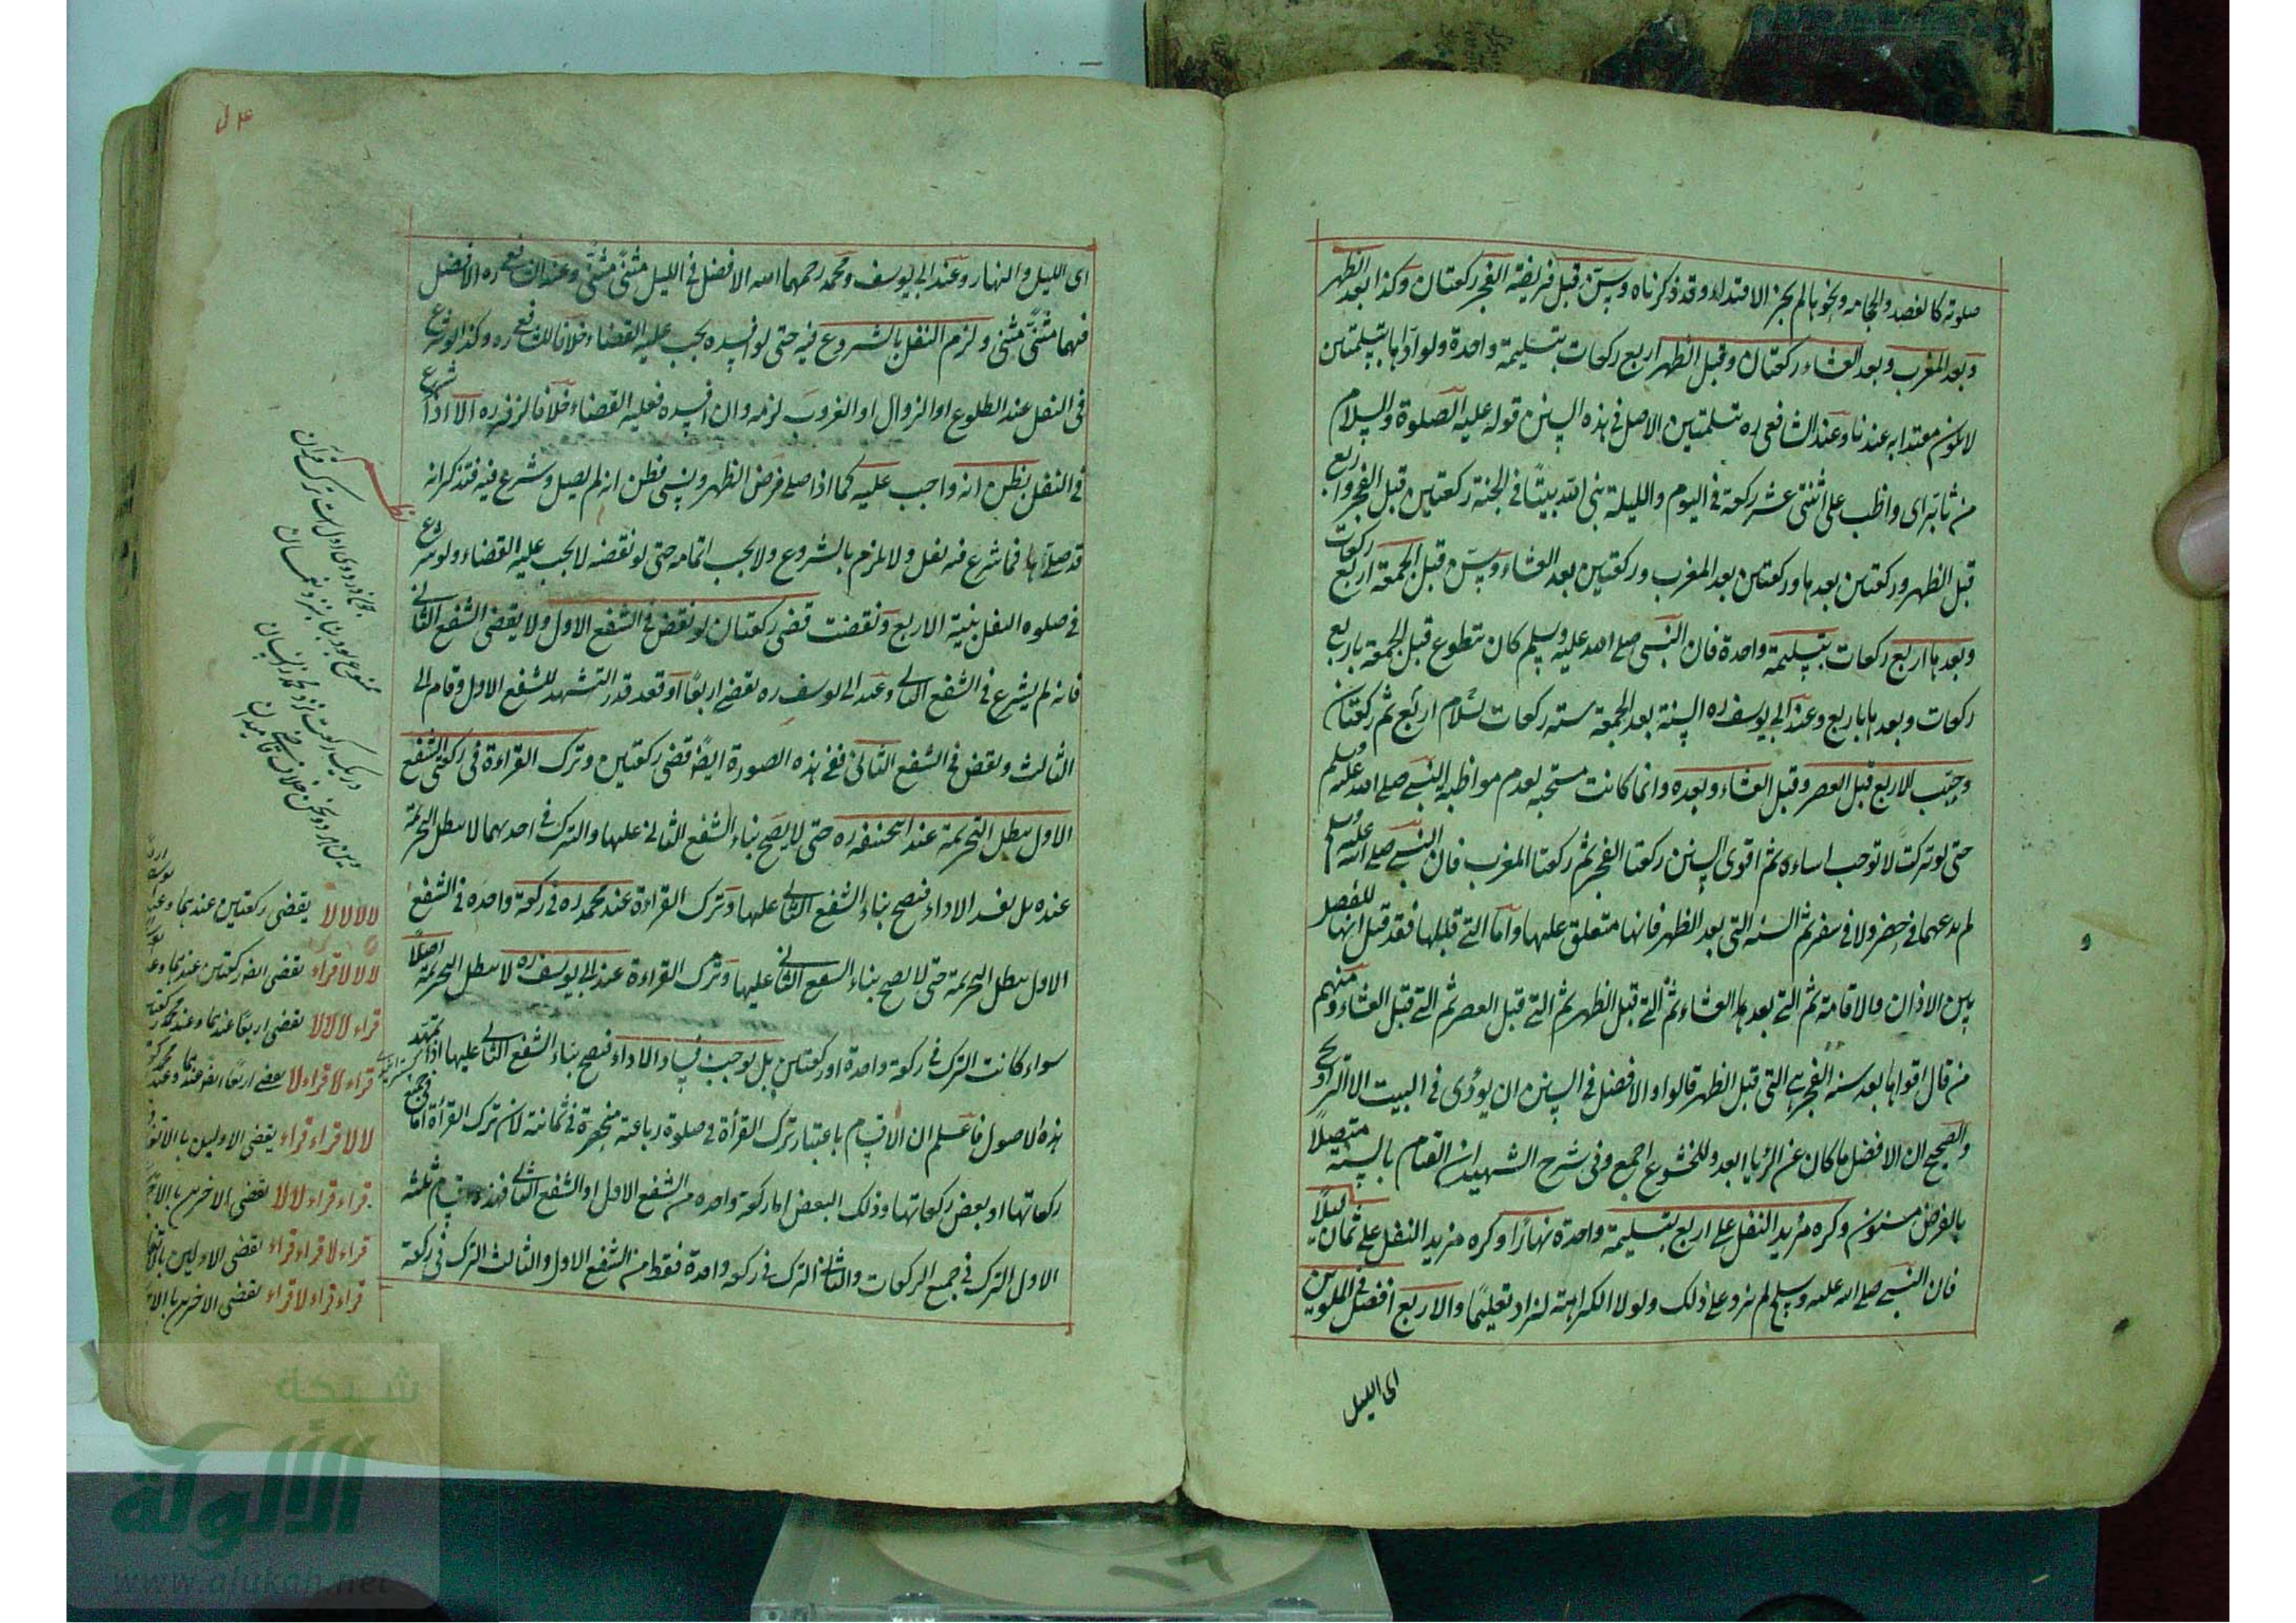 صلوته كالفصد والحجامه ونحوها لم يجز الاقتداء وقد ذكرناه وسن قبل فريضة الفجر ركعتان وكذا بعد الظهر
وبعد المغرب وبعد العشاء ركعتان وقبل الظهر اربع ركعات بتسليمة واحدة ولو اداها بتسلمتين
لا يكون معتدا به عندنا وعند الشافعى ره بتسلمتين الاصل فى هذه السنن قوله عليه الصلوة والسلام
من ثابر اى واظب على اثنتى عشر ركعة فى اليوم والليلة بنى الله بيتا فى الجنة ركعتين قبل الفجر واربع
قبل الظهر وركعتين بعدها وركعتين بعد المغرب وركعتين بعد العشاء وسن قبل الجمعة اربع ركعات
وبعدها اربع ركعات بتسليمة واحدة فان النبى صلى الله عليه وسلم كان يتطوع قبل الجمعة باربع
ركعات وبعدها باربع وعند ابى يوسف ره السنة بعد الجمعة ستة ركعات بسلام اربع ثم ركعتان
وحبب الاربع قبل العصر وقبل العشاء وبعده وانما كانت مستحبة لعدم مواظبة النبى صلى الله عليه وسلم
حتى لو تركت لا توجب اساءة ثم اقوى السنن ركعتا الفجر ثم ركعتا المغرب فان النبى صلى الله عليه وسلم
لم يدعهما فى حضر ولا فى سفر ثم السنة التى بعد الظهر فانها متعلق عليها واما التى قبلها فقد قيل انها للفصل
بين الاذان والاقامة ثم التى بعدها العشاء ثم التى قبل الظهر ثم التى قبل العصر ثم التى قبل العشاء ومنهم
من قال اقواها بعد سنة الفجر هى التى قبل الظهر قالوا والافضل فى السنن ان يؤدى فى البيت الا التراويح
والصحيح ان الافضل ما كان عن الريا ابعد وللخشوع اجمع وفى شرح الشهيد ان القيام بالسنة متصلا
بالفرض مسنون وكره مزيد النفل على اربع بتسليمة واحدة نهارا وكره مزيد النفل على ثمان ليلا
فان النبى صلى الله عليه وسلم لم يزد على ذلك ولولا الكراهة لزاد تعليما والاربع افضل فى الملوين
اى الليل
اى الليل والنهار وعند ابى يوسف ومحمد رحمهما الله الافضل فى الليل مثنى مثنى وعند الشافعى ره الافضل
فيهما مثنى مثنى ولزم النفل بالشروع فيه حتى لو افسده يجب عليه القضاء خلافا للشافعى ره وكذا لو شرع
فى النفل عند الطلوع او الزوال او الغروب لزمه وان افسده فعليه القضاء خلافا لزفر ره الا اذا شرع
فى النفل بظن انه واجب عليه كما اذا صلى فرض الظهر ونسى فظن انه لم يصل وشرع فيه فتذكر انه
قد صليها فما شرع فيه نفل ولا يلزم بالشروع ولا يجب اتمامه حتى لو نقضه لا يجب عليه القضاء ولو شرع
فى صلوة النفل بنية الاربع ونقضت قضى ركعتان لو نقض فى الشفع الاول ولا يقضى الشفع الثانى
فانه لم يشرع فى الشفع الثانى وعند ابى يوسف ره يقضى اربعا او قعد قدر التشهد للشفع الاول وقام الى
الثالث ونقض فى الشفع الثانى ففى هذه الصورة ايضا قضى ركعتين وترك القراءة فى ركعتى الشفع
الاول يبطل التحريمة عند ابى حنيفة ره حتى لا يصح بناء الشفع الثانى عليها والترك فى احديهما لا يبطل التحريمة
عنده بل يفسد الاداء فيصح بناء الشفع الثانى عليها وترك القراءة عند محمد ره فى ركعة واحدة فى الشفع
الاول يبطل التحريمة حتى لا يصح بناء الشفع الثانى عليها وترك القراءة عند ابى يوسف ره لا يبطل التحريمة اصلا
سواء كانت الترك فى ركعة واحدة او ركعتين بل يوجب فساد الاداء فيصح بناء الشفع الثانى عليها اذا تمهد
هذه الاصول فاعلم ان الاقسام باعتبار ترك القرأة فى صلوة رباعية منحصرة فى ثمانية لان ترك القرأة اما فى جميع
ركعاتها او بعض ركعاتها وذلك البعض اما ركعة واحدة من الشفع الاول او الشفع الثانى فهذه اقسام ثلثة
الاول الترك فى جميع الركعات والثانى الترك فى ركعة واحدة فقط من الشفع الاول والثالث الترك فى ركعة
لا لا لا لا يقضى ركعتين عندهما وعند
لا لا لا قراء يقضى ايضا ركعتين عندهما وعند
قراء لا لا لا يقضى اربعا عندهما وعند محمد ركعتين
قراء لا قراء لا يقضى اربعا ايضا عندهما وعند محمد
لا لا قراء قراء يقضى الاوليين بالاتفاق
قراء قراء لا لا يقضى الاخريين
قراء لا قراء قراء يقضى الاوليين بالاتفاق
قراء قراء لا قراء يقضى الاخريين
شبكة
الألوكة
www.alukah.net